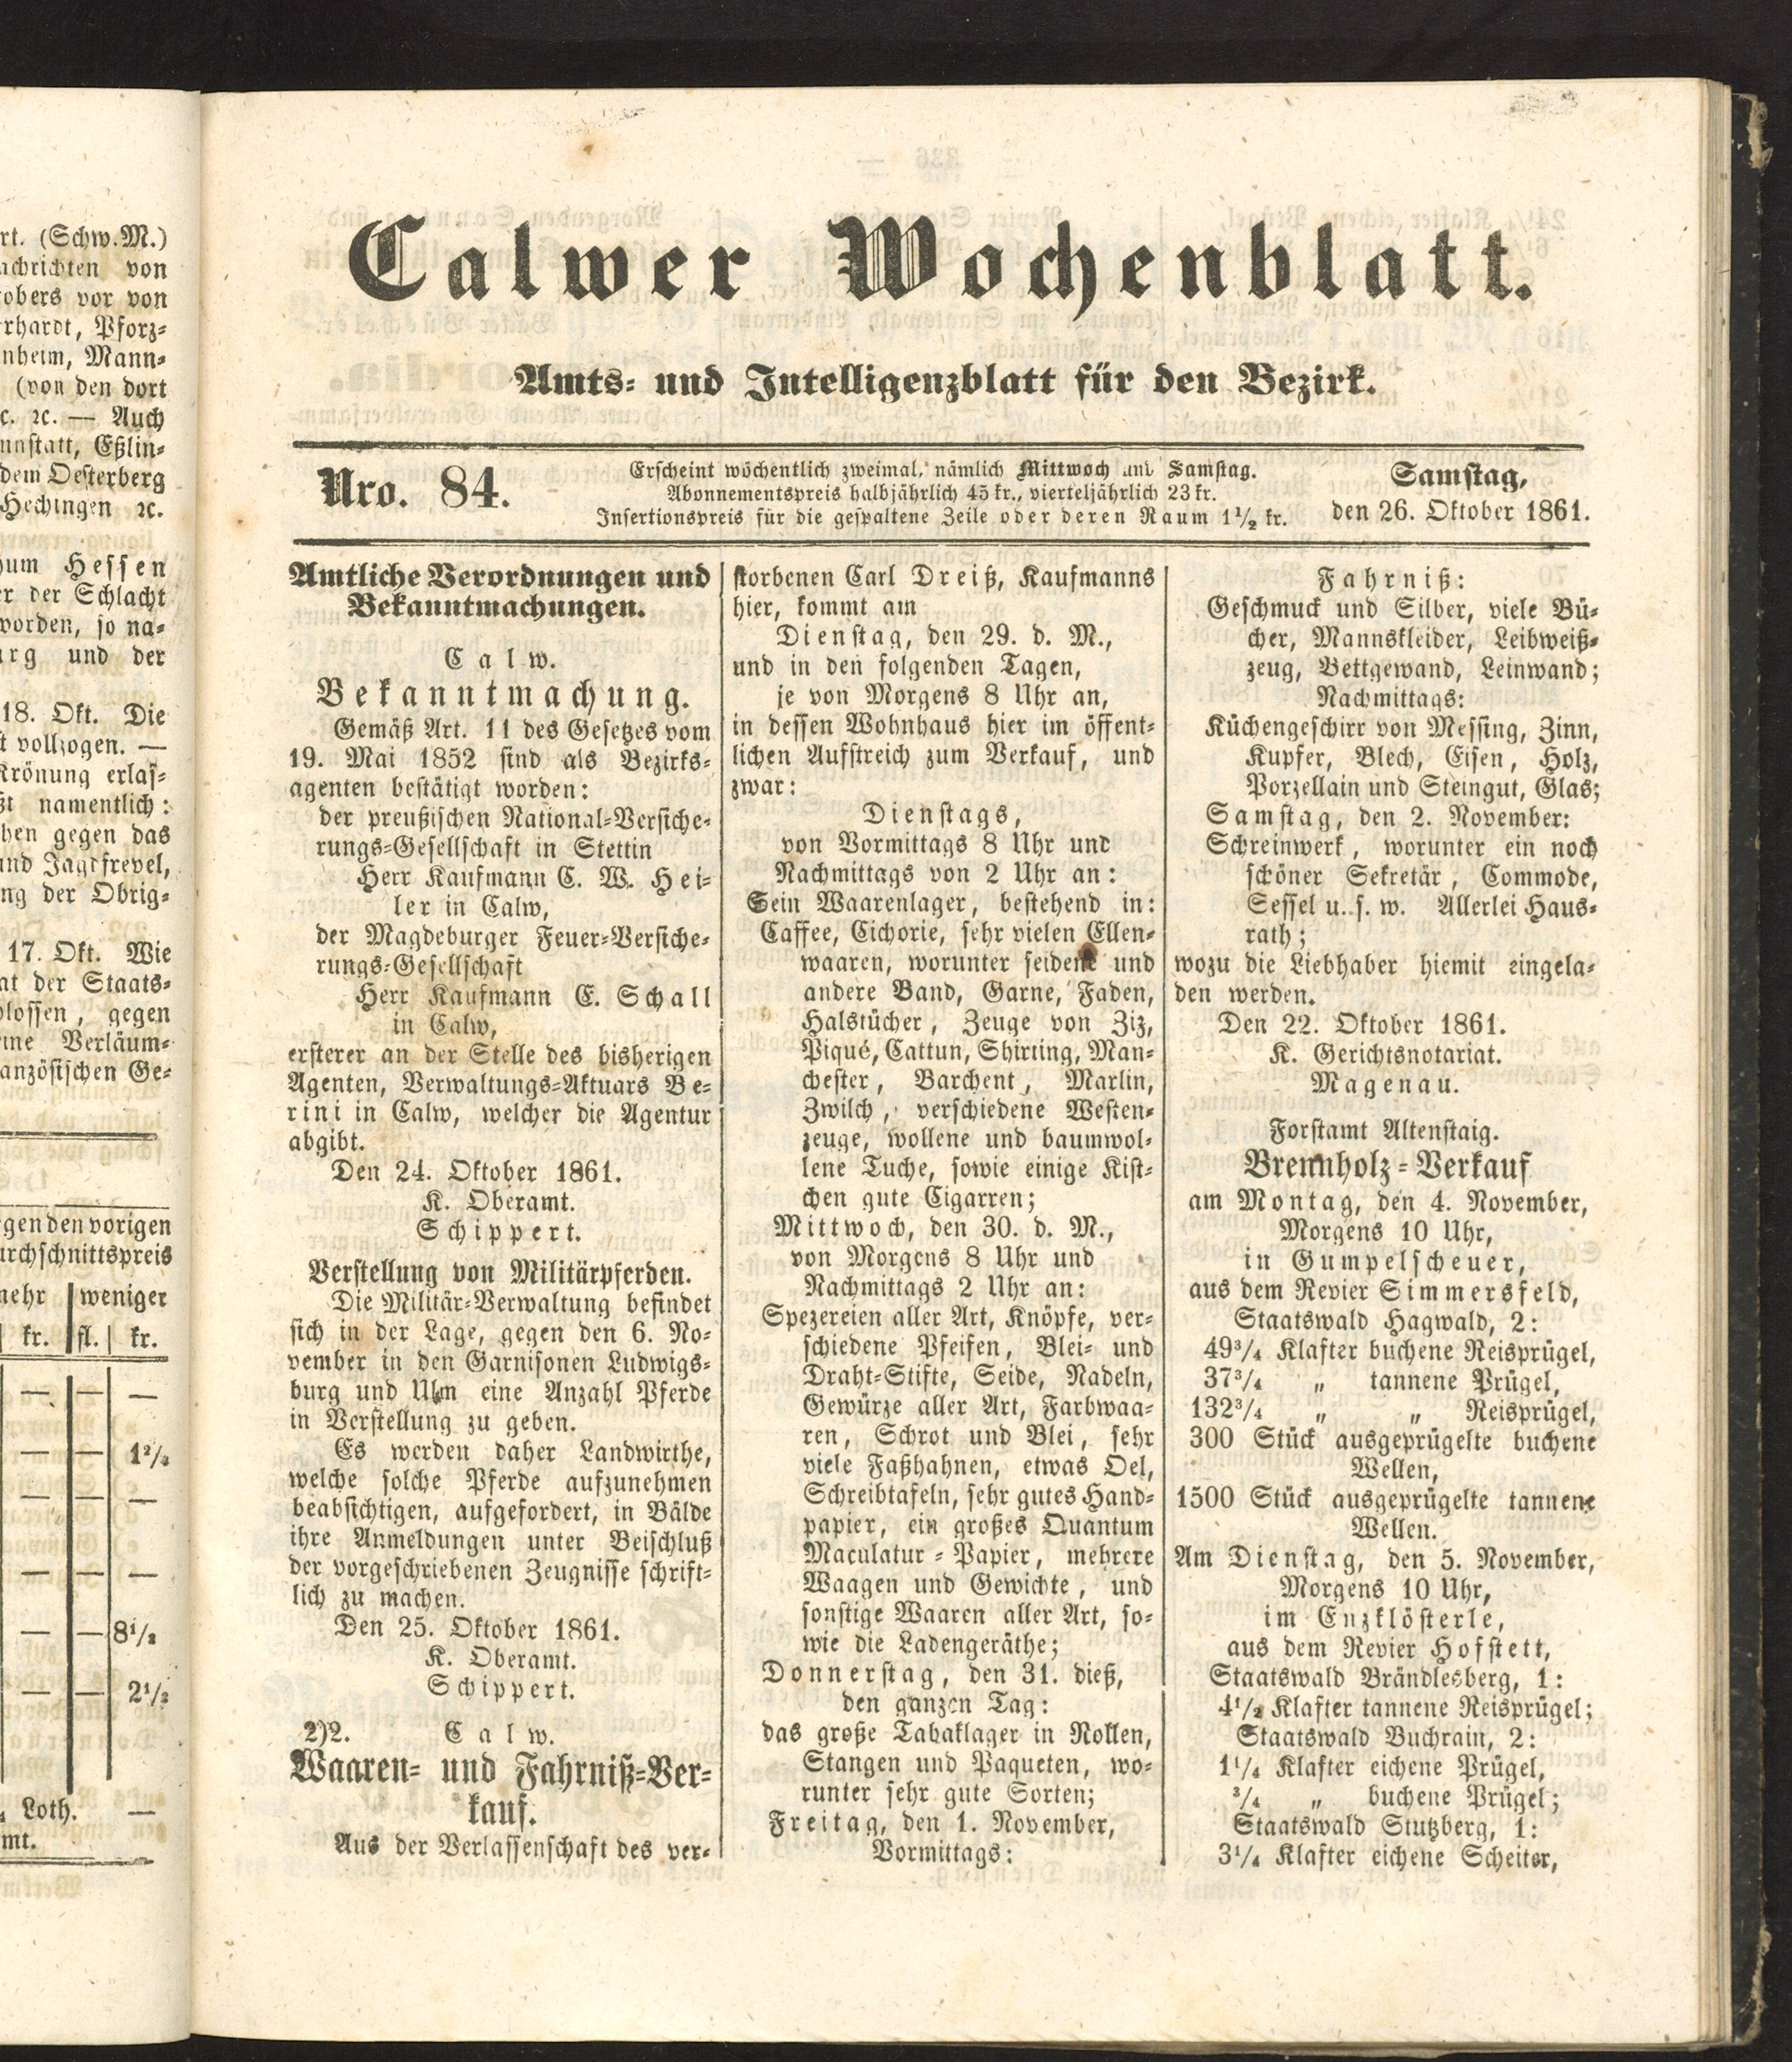 rt. (Schw. M.)
achrichten von
tobers vor von
rhardt, Pforz-
nheim, Mann-
(von den dort
c. ꝛc. — Auch
nnstatt, Eßlin-
dem Oesterberg
Hechingen ꝛc.
zum Hessen
er der Schlacht
worden, so na-
urg und der
18. Okt. Die
t vollzogen. —
Krönung erlas-
ßt namentlich:
ben gegen das
und Jagdfrevel,
ng der Obrig-
17. Okt. Wie
at der Staats-
lossen, gegen
ine Verläum-
anzösischen Ge-
gen den vorigen
urchschnittspreis
mehr weniger
kr. fl. kr.
— — —
— — 1²/₄
— — —
— — —
— — 8¹/₂
— — 2¹/₂
Loth. —
mt.
Calwer Wochenblatt.
Amts- und Intelligenzblatt für den Bezirk.
Nro. 84.
Erscheint wöchentlich zweimal, nämlich Mittwoch und Samstag.
Abonnementspreis halbjährlich 45 kr., vierteljährlich 23 kr.
Insertionspreis für die gespaltene Zeile oder deren Raum 1¹/₂ kr.
Samstag,
den 26. Oktober 1861.
Amtliche Verordnungen und
Bekanntmachungen.
Calw.
Bekanntmachung.
Gemäß Art. 11 des Gesetzes vom
19. Mai 1852 sind als Bezirks-
agenten bestätigt worden:
der preußischen National-Versiche-
rungs-Gesellschaft in Stettin
Herr Kaufmann C. W. Hei-
ler in Calw,
der Magdeburger Feuer-Versiche-
rungs-Gesellschaft
Herr Kaufmann E. Schall
in Calw,
ersterer an der Stelle des bisherigen
Agenten, Verwaltungs-Aktuars Be-
rini in Calw, welcher die Agentur
abgibt.
Den 24. Oktober 1861.
K. Oberamt.
Schippert.
Verstellung von Militärpferden.
Die Militär-Verwaltung befindet
sich in der Lage, gegen den 6. No-
vember in den Garnisonen Ludwigs-
burg und Ulm eine Anzahl Pferde
in Verstellung zu geben.
Es werden daher Landwirthe,
welche solche Pferde aufzunehmen
beabsichtigen, aufgefordert, in Bälde
ihre Anmeldungen unter Beischluß
der vorgeschriebenen Zeugnisse schrift-
lich zu machen.
Den 25. Oktober 1861.
K. Oberamt.
Schippert.
2)2. Calw.
Waaren- und Fahrniß-Ver-
kauf.
Aus der Verlassenschaft des ver-
storbenen Carl Dreiß, Kaufmanns
hier, kommt am
Dienstag, den 29. d. M.,
und in den folgenden Tagen,
je von Morgens 8 Uhr an,
in dessen Wohnhaus hier im öffent-
lichen Aufstreich zum Verkauf, und
zwar:
Dienstags,
von Vormittags 8 Uhr und
Nachmittags von 2 Uhr an:
Sein Waarenlager, bestehend in:
Caffee, Cichorie, sehr vielen Ellen-
waaren, worunter seidene und
andere Band, Garne, Faden,
Halstücher, Zeuge von Ziz,
Piqué, Cattun, Shirting, Man-
chester, Barchent, Marlin,
Zwilch, verschiedene Westen-
zeuge, wollene und baumwol-
lene Tuche, sowie einige Kist-
chen gute Cigarren;
Mittwoch, den 30. d. M.,
von Morgens 8 Uhr und
Nachmittags 2 Uhr an:
Spezereien aller Art, Knöpfe, ver-
schiedene Pfeifen, Blei- und
Draht-Stifte, Seide, Nadeln,
Gewürze aller Art, Farbwaa-
ren, Schrot und Blei, sehr
viele Faßhahnen, etwas Oel,
Schreibtafeln, sehr gutes Hand-
papier, ein großes Quantum
Maculatur-Papier, mehrere
Waagen und Gewichte, und
sonstige Waaren aller Art, so-
wie die Ladengeräthe;
Donnerstag, den 31. dieß,
den ganzen Tag:
das große Tabaklager in Rollen,
Stangen und Paqueten, wo-
runter sehr gute Sorten;
Freitag, den 1. November,
Vormittags:
Fahrniß:
Geschmuck und Silber, viele Bü-
cher, Mannskleider, Leibweiß-
zeug, Bettgewand, Leinwand;
Nachmittags:
Küchengeschirr von Messing, Zinn,
Kupfer, Blech, Eisen, Holz,
Porzellain und Steingut, Glas;
Samstag, den 2. November:
Schreinwerk, worunter ein noch
schöner Sekretär, Commode,
Sessel u. s. w. Allerlei Haus-
rath;
wozu die Liebhaber hiemit eingela-
den werden.
Den 22. Oktober 1861.
K. Gerichtsnotariat.
Magenau.
Forstamt Altenstaig.
Brennholz-Verkauf
am Montag, den 4. November,
Morgens 10 Uhr,
in Gumpelscheuer,
aus dem Revier Simmersfeld,
Staatswald Hagwald, 2:
49³/₄ Klafter buchene Reisprügel,
37³/₄ „ tannene Prügel,
132³/₄ „ „ Reisprügel,
300 Stück ausgeprügelte buchene
Wellen,
1500 Stück ausgeprügelte tannene
Wellen.
Am Dienstag, den 5. November,
Morgens 10 Uhr,
im Enzklösterle,
aus dem Revier Hofstett,
Staatswald Brändlesberg, 1:
4¹/₂ Klafter tannene Reisprügel;
Staatswald Buchrain, 2:
1¹/₄ Klafter eichene Prügel,
³/₄ „ buchene Prügel;
Staatswald Stutzberg, 1:
3¹/₄ Klafter eichene Scheiter,